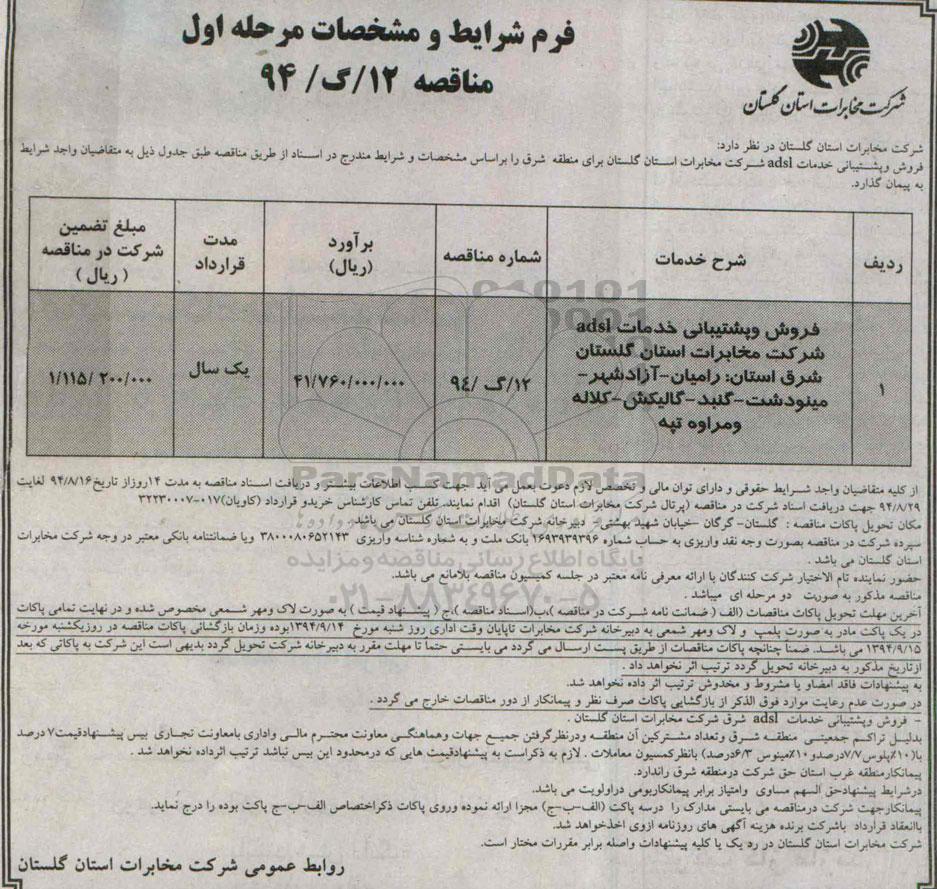 فرم شرایط و مشخصات مرحله اول
مناقصه ۱۲/گ/ ۹۴
شرکت مخابرات استان گلستان
شرکت مخابرات استان گلستان در نظر دارد:
فروش وپشتیبانی خدمات adsl شرکت مخابرات استان گلستان برای منطقه شرق را براساس مشخصات و شرایط مندرج در اسناد از طریق مناقصه طبق جدول ذیل به متقاضیان واجد شرایط
به پیمان گذارد.
ردیف
شرح خدمات
شماره مناقصه
برآورد
(ریال)
مدت
قرارداد
مبلغ تضمین
شرکت در مناقصه
( ریال )
۱
فروش وپشتیبانی خدمات adsl
شرکت مخابرات استان گلستان
شرق استان: رامیان-آزادشهر-
مینودشت-گنبد-گالیکش-کلاله
ومراوه تپه
۱۲/گ /۹٤
۴۱/۷۶۰/۰۰۰/۰۰۰
یک سال
۱/۱۱۵/ ۲۰۰/۰۰۰
از کلیه متقاضیان واجد شرایط حقوقی و دارای توان مالی و تخصص لازم دعوت بعمل می آید جهت کسب اطلاعات بیشتر و دریافت اسناد مناقصه به مدت ۱۴روزاز تاریخ۹۴/۸/۱۶ لغایت
۹۴/۸/۲۹ جهت دریافت اسناد شرکت در مناقصه (پرتال شرکت مخابرات استان گلستان) اقدام نمایند. تلفن تماس کارشناس خریدو قرارداد (کاویان)۰۱۷-۳۲۲۳۰۰۰۷
مکان تحویل پاکات مناقصه : گلستان- گرگان -خیابان شهید بهشتی/ دبیرخانه شرکت مخابرات استان گلستان می باشد.
سپرده شرکت در مناقصه بصورت وجه نقد واریزی به حساب شماره ۲۶۹۳۹۳۹۳۹۶ بانک ملت و به شماره شناسه واریزی ۳۸۰۰۰۸۰۶۵۲۱۴۳ ویا ضمانتنامه بانکی معتبر در وجه شرکت مخابرات
استان گلستان می باشد .
حضور نماینده تام الاختیار شرکت کنندگان با ارائه معرفی نامه معتبر در جلسه کمیسیون مناقصه بلامانع می باشد.
مناقصه مذکور به صورت دو مرحله ای میباشد .
آخرین مهلت تحویل پاکات مناقصات (الف ( ضمانت نامه شرکت در مناقصه )،ب(اسناد مناقصه )،ج ( پیشنهاد قیمت ) به صورت لاک ومهر شمعی مخصوص شده و در نهایت تمامی پاکات
در یک پاکت مادر به صورت پلمپ و لاک ومهر شمعی به دبیرخانه شرکت مخابرات تاپایان وقت اداری روز شنبه مورخ ۱۳۹۴/۹/۱۴بوده وزمان بازگشائی پاکات مناقصه در روزیکشنبه مورخه
۱۳۹۴/۹/۱۵ می باشد. ضمناً چنانچه پاکات مناقصات از طریق پست ارسال می گردد می بایستی حتما تا مهلت مقرر به دبیرخانه شرکت تحویل گردد بدیهی است این شرکت به پاکاتی که بعد
ازتاریخ مذکور به دبیرخانه تحویل گردد ترتیب اثر نخواهد داد .
به پیشنهادات فاقد امضاو یا مشروط و مخدوش ترتیب اثر داده نخواهد شد.
در صورت عدم رعایت موارد فوق الذکر از بازگشایی پاکات صرف نظر و پیمانکار از دور مناقصات خارج می گردد .
- فروش وپشتیبانی خدمات adsl شرق شرکت مخابرات استان گلستان .
بدلیل تراکم جمعیتی منطقه شرق وتعداد مشترکین آن منطقه ودرنظرگرفتن جمیع جهات وهماهنگی معاونت محترم مالی واداری بامعاونت تجاری بیس پیشنهادقیمت۷ درصد
با(۱۰٪پلوس۷/۷درصدو۱۰٪مینوس ۶/۳درصد) بانظرکمسیون معاملات . لازم به ذکراست به پیشنهادقیمت هایی که درمحدود این بیس نباشد ترتیب اثرداده نخواهد شد .
پیمانکارمنطقه غرب استان حق شرکت درمنطقه شرق راندارد.
درشرایط پیشنهادحق السهم مساوی وامتیاز برابر پیمانکاربومی دراولویت می باشد.
پیمانکارجهت شرکت درمناقصه می بایستی مدارک را درسه پاکت (الف-ب-ج) مجزا ارائه نموده وروی پاکات ذکراختصاص الف-ب-ج پاکت بوده را درج نماید.
باانعقاد قرارداد باشرکت برنده هزینه آگهی های روزنامه ازوی اخذخواهد شد.
شرکت مخابرات استان گلستان در رد یک یا کلیه پیشنهادات واصله برابر مقررات مختار است.
روابط عمومی شرکت مخابرات استان گلستان
ParsNamadData
پایگاه اطلاع رسانی مناقصه و مزایده
۰۲۱-۸۸۳۴۹۶۷۰-۵